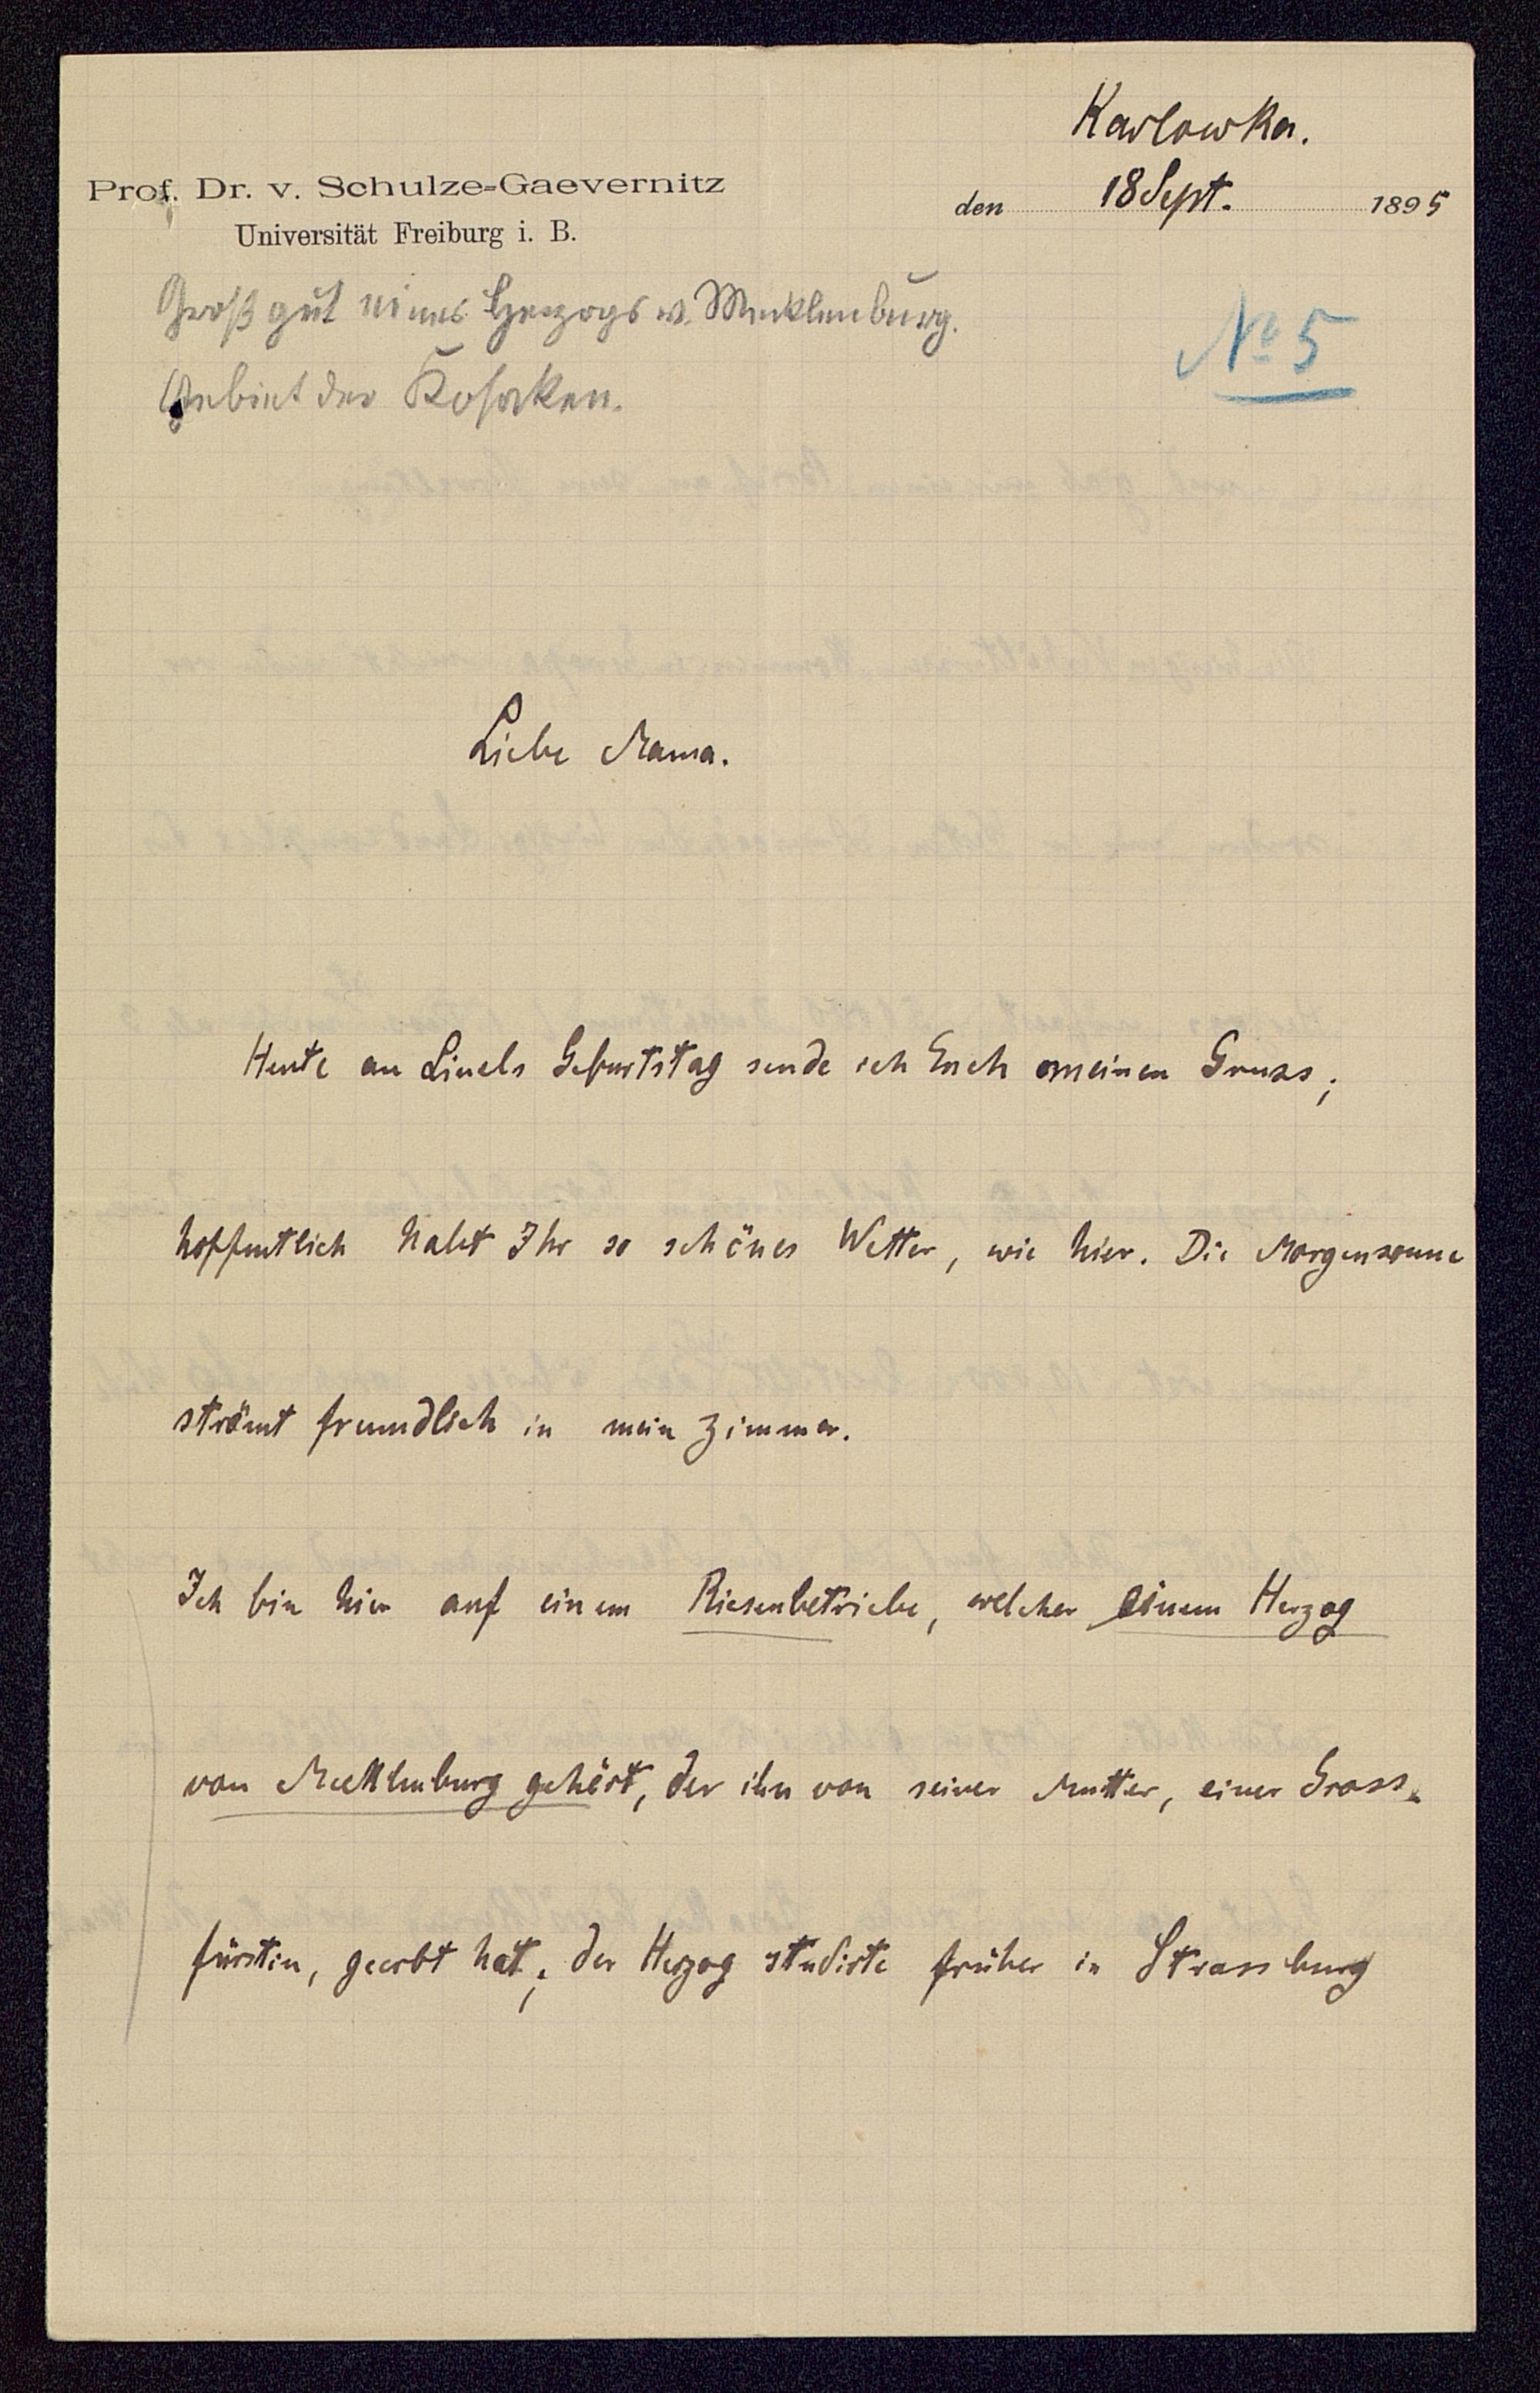 Karlowka.
Prof. Dr. v. Schulze-Gaevernitz
den 18 Sept. 1895
Universität Freiburg i. B.
Großgut eines Herzogs v. Mecklenburg.
Gebiet der Kosaken.
No 5
Liebe Mama.
Heute an Linels Geburtstag sende ich Euch meinen Gruss;
hoffentlich habt Ihr so schönes Wetter, wie hier. Die Morgensonne
strömt freundlich in mein Zimmer.
Ich bin hier auf einem Riesenbetriebe, welcher einem Herzog
von Mecklenburg gehört, der ihn von seiner Mutter, einer Gross-
fürstin, geerbt hat; der Herzog studirte früher in Strassburg